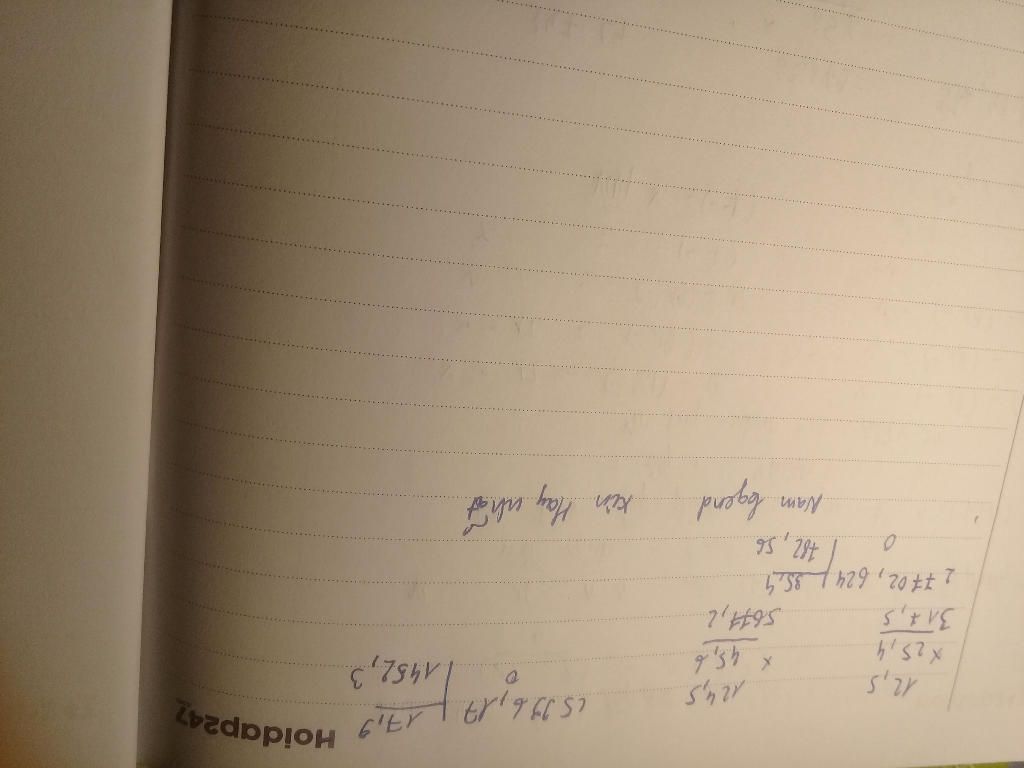 Hoidap247
12,5 124,5 25996,17 17,9
×25,4 × 45,6 0 1452,3
317,5 5677,2
27702,624 35,4
0 782,56
Nam legend xin Hay nhất